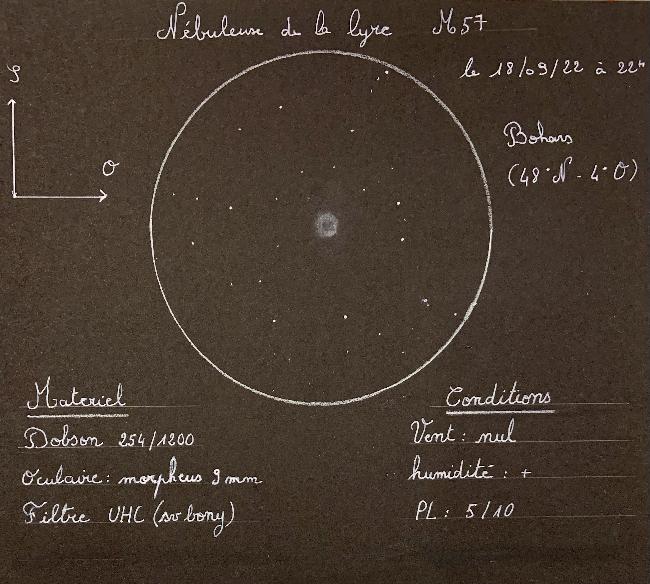 Nébuleuse de la lyre M57
le 18/09/22 à 22h
S
Bohars
O
(48°N - 4°O)
Materiel
Conditions
Dobson 254/1200
Vent : nul
Oculaire : morpheus 9mm
humidité : +
Filtre UHC (sv bony)
PL : 5/10